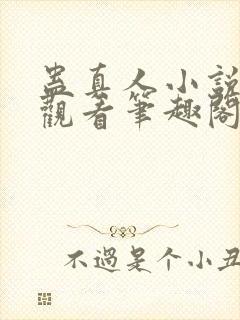 蛊真人小説
觀着筆趣閣
不過是个小丑